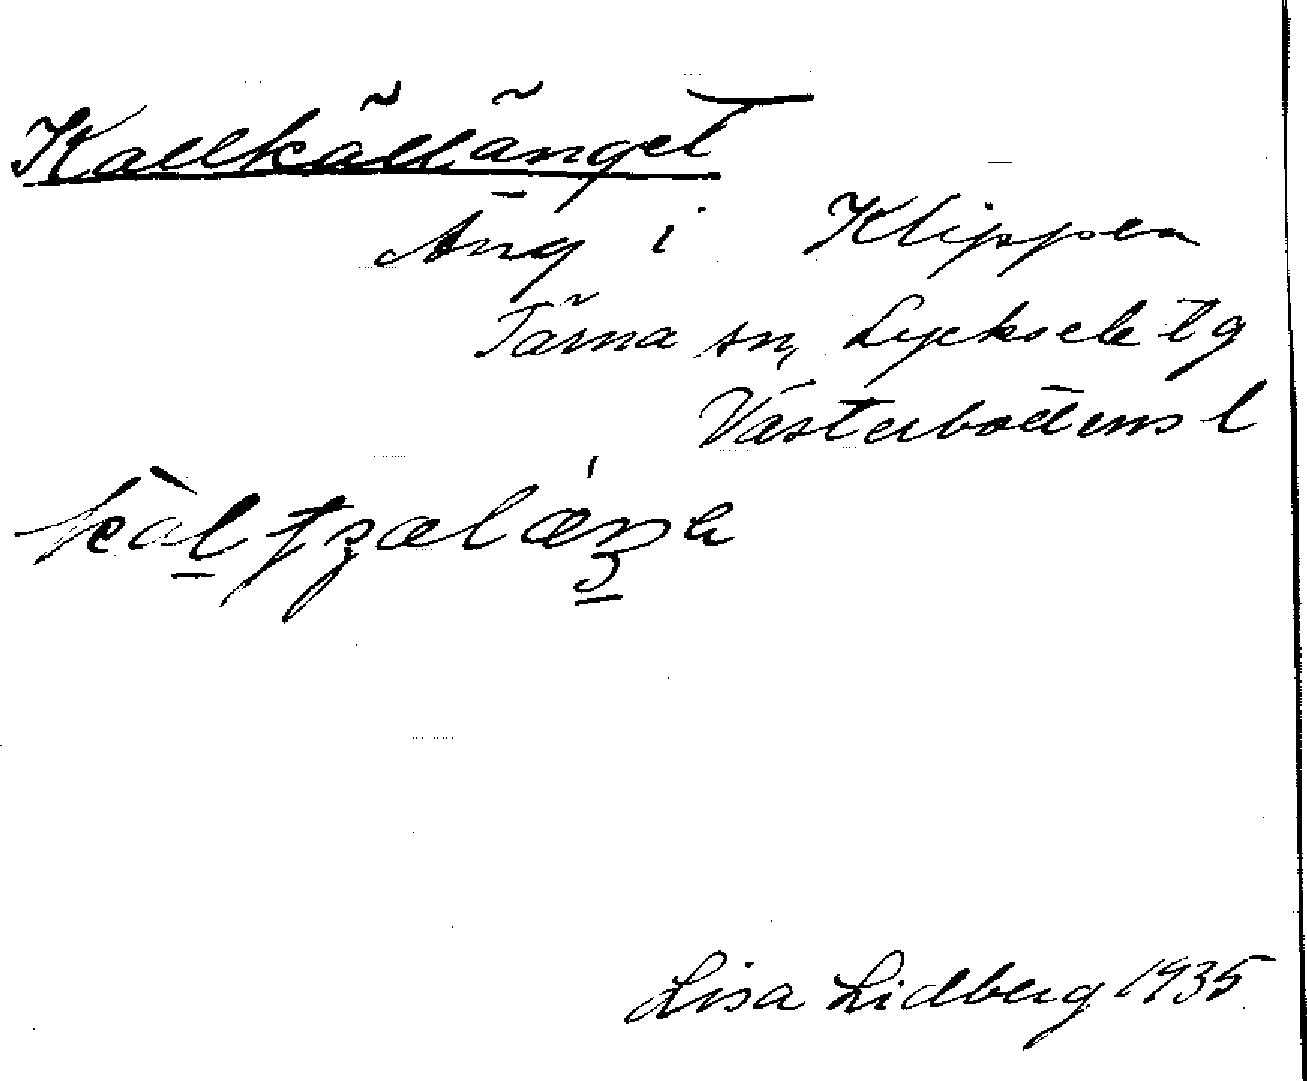 Kallkälläng̃et
Äng i Klippen
Tärna sn, Lycksele tg
Västerbottens l
Lisa Lidberg 1935